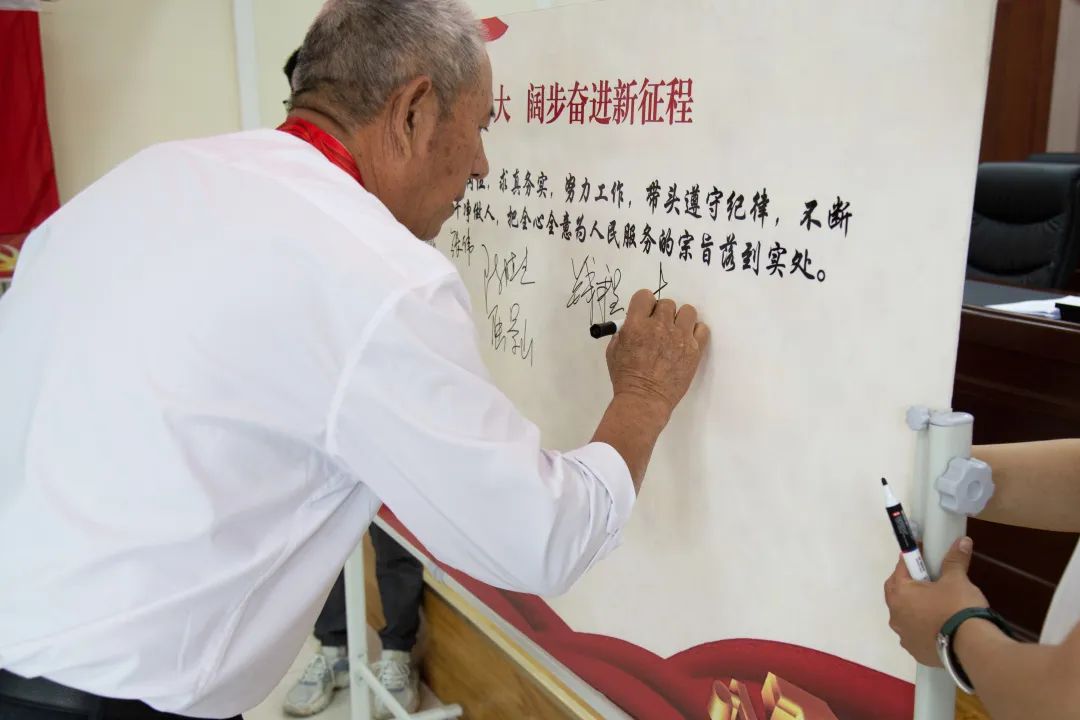 大 阔步奋进新征程
岗位，求真务实，努力工作，带头遵守纪律，不断
干净做人，把全心全意为人民服务的宗旨落到实处。
张伟